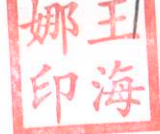 王海
娜印